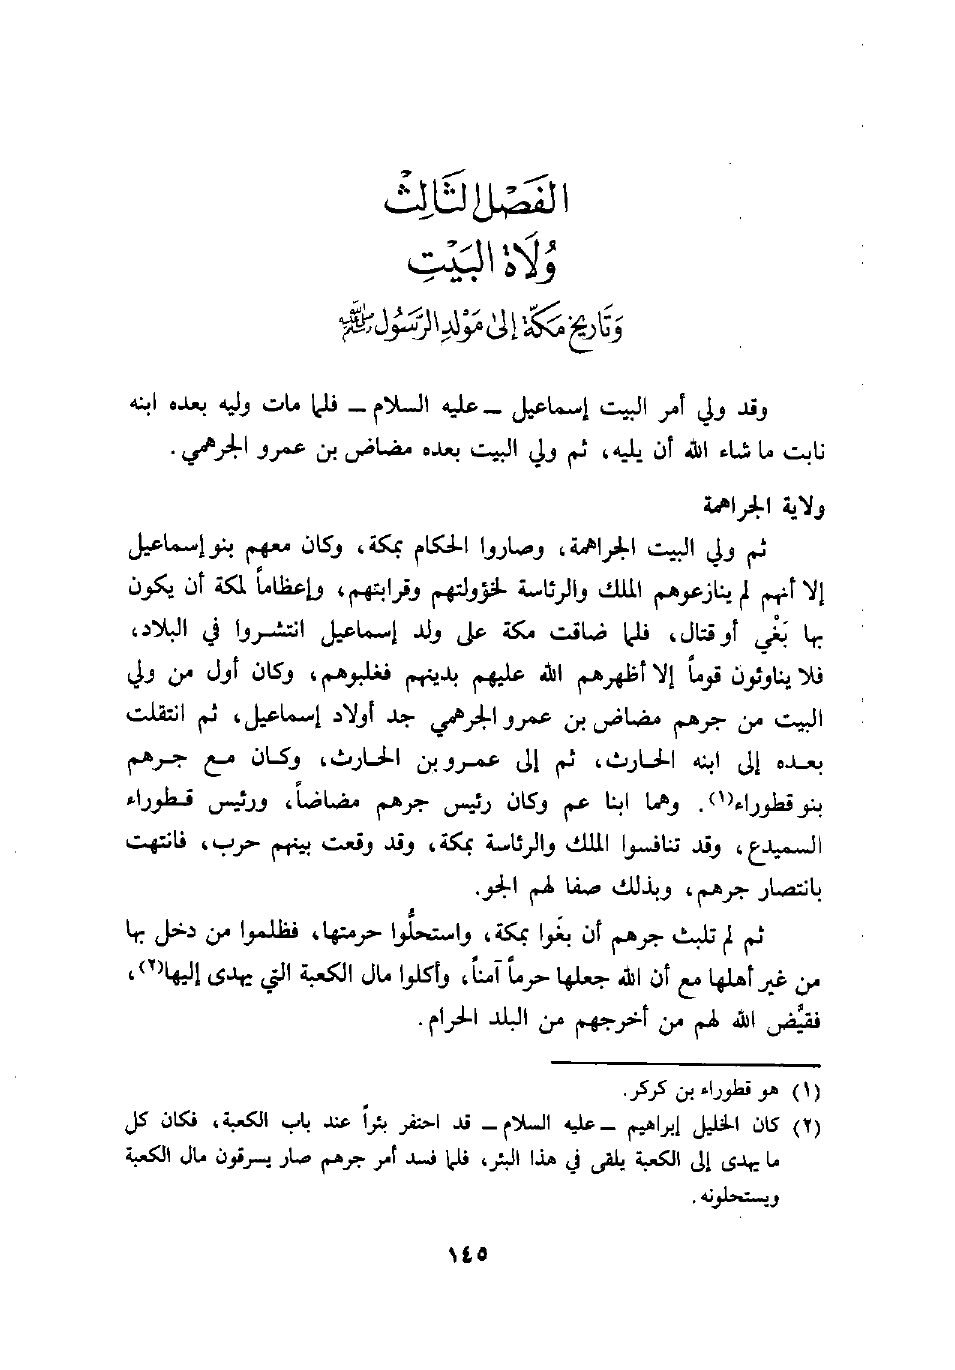 الفَصْل الثَّالِثْ
وُلَاة البَيْتِ
وَتَاريخ مَكَّة إلى مَوْلدِ الرَّسُول ﷺ
وقد ولي أمر البيت إسماعيل ـ عليه السلام ـ فلما مات وليه بعده ابنه
نابت ما شاء الله أن يليه، ثم ولي البيت بعده مضاض بن عمرو الجرهمي.
ولاية الجراهمة
ثم ولي البيت الجراهمة، وصاروا الحكام بمكة، وكان معهم بنو إسماعيل
إلا أنهم لم ينازعوهم الملك والرئاسة لخؤولتهم وقرابتهم، وإعظاماً لمكة أن يكون
بها بَغْي أو قتال، فلما ضاقت مكة على ولد إسماعيل انتشروا في البلاد،
فلا يناوئون قوماً إلا أظهرهم الله عليهم بدينهم فغلبوهم، وكان أول من ولي
البيت من جرهم مضاض بن عمرو الجرهمي جد أولاد إسماعيل، ثم انتقلت
بعده إلى ابنه الحارث، ثم إلى عمرو بن الحارث، وكان مع جرهم
بنو قطوراء(١). وهما ابنا عم وكان رئيس جرهم مضاضاً، ورئيس قطوراء
السميدع، وقد تنافسوا الملك والرئاسة بمكة، وقد وقعت بينهم حرب، فانتهت
بانتصار جرهم، وبذلك صفا لهم الجو.
ثم لم تلبث جرهم أن بغَوا بمكة، واستحلُّوا حرمتها، فظلموا من دخل بها
من غير أهلها مع أن الله جعلها حرماً آمناً، وأكلوا مال الكعبة التي يهدى إليها(٢)،
فقيَّض الله لهم من أخرجهم من البلد الحرام.
(١) هو قطوراء بن كركر.
(٢) كان الخليل إبراهيم ـ عليه السلام ـ قد احتفر بئراً عند باب الكعبة، فكان كل
ما يهدى إلى الكعبة يلقى في هذا البئر، فلما فسد أمر جرهم صار يسرقون مال الكعبة
ويستحلونه.
١٤٥